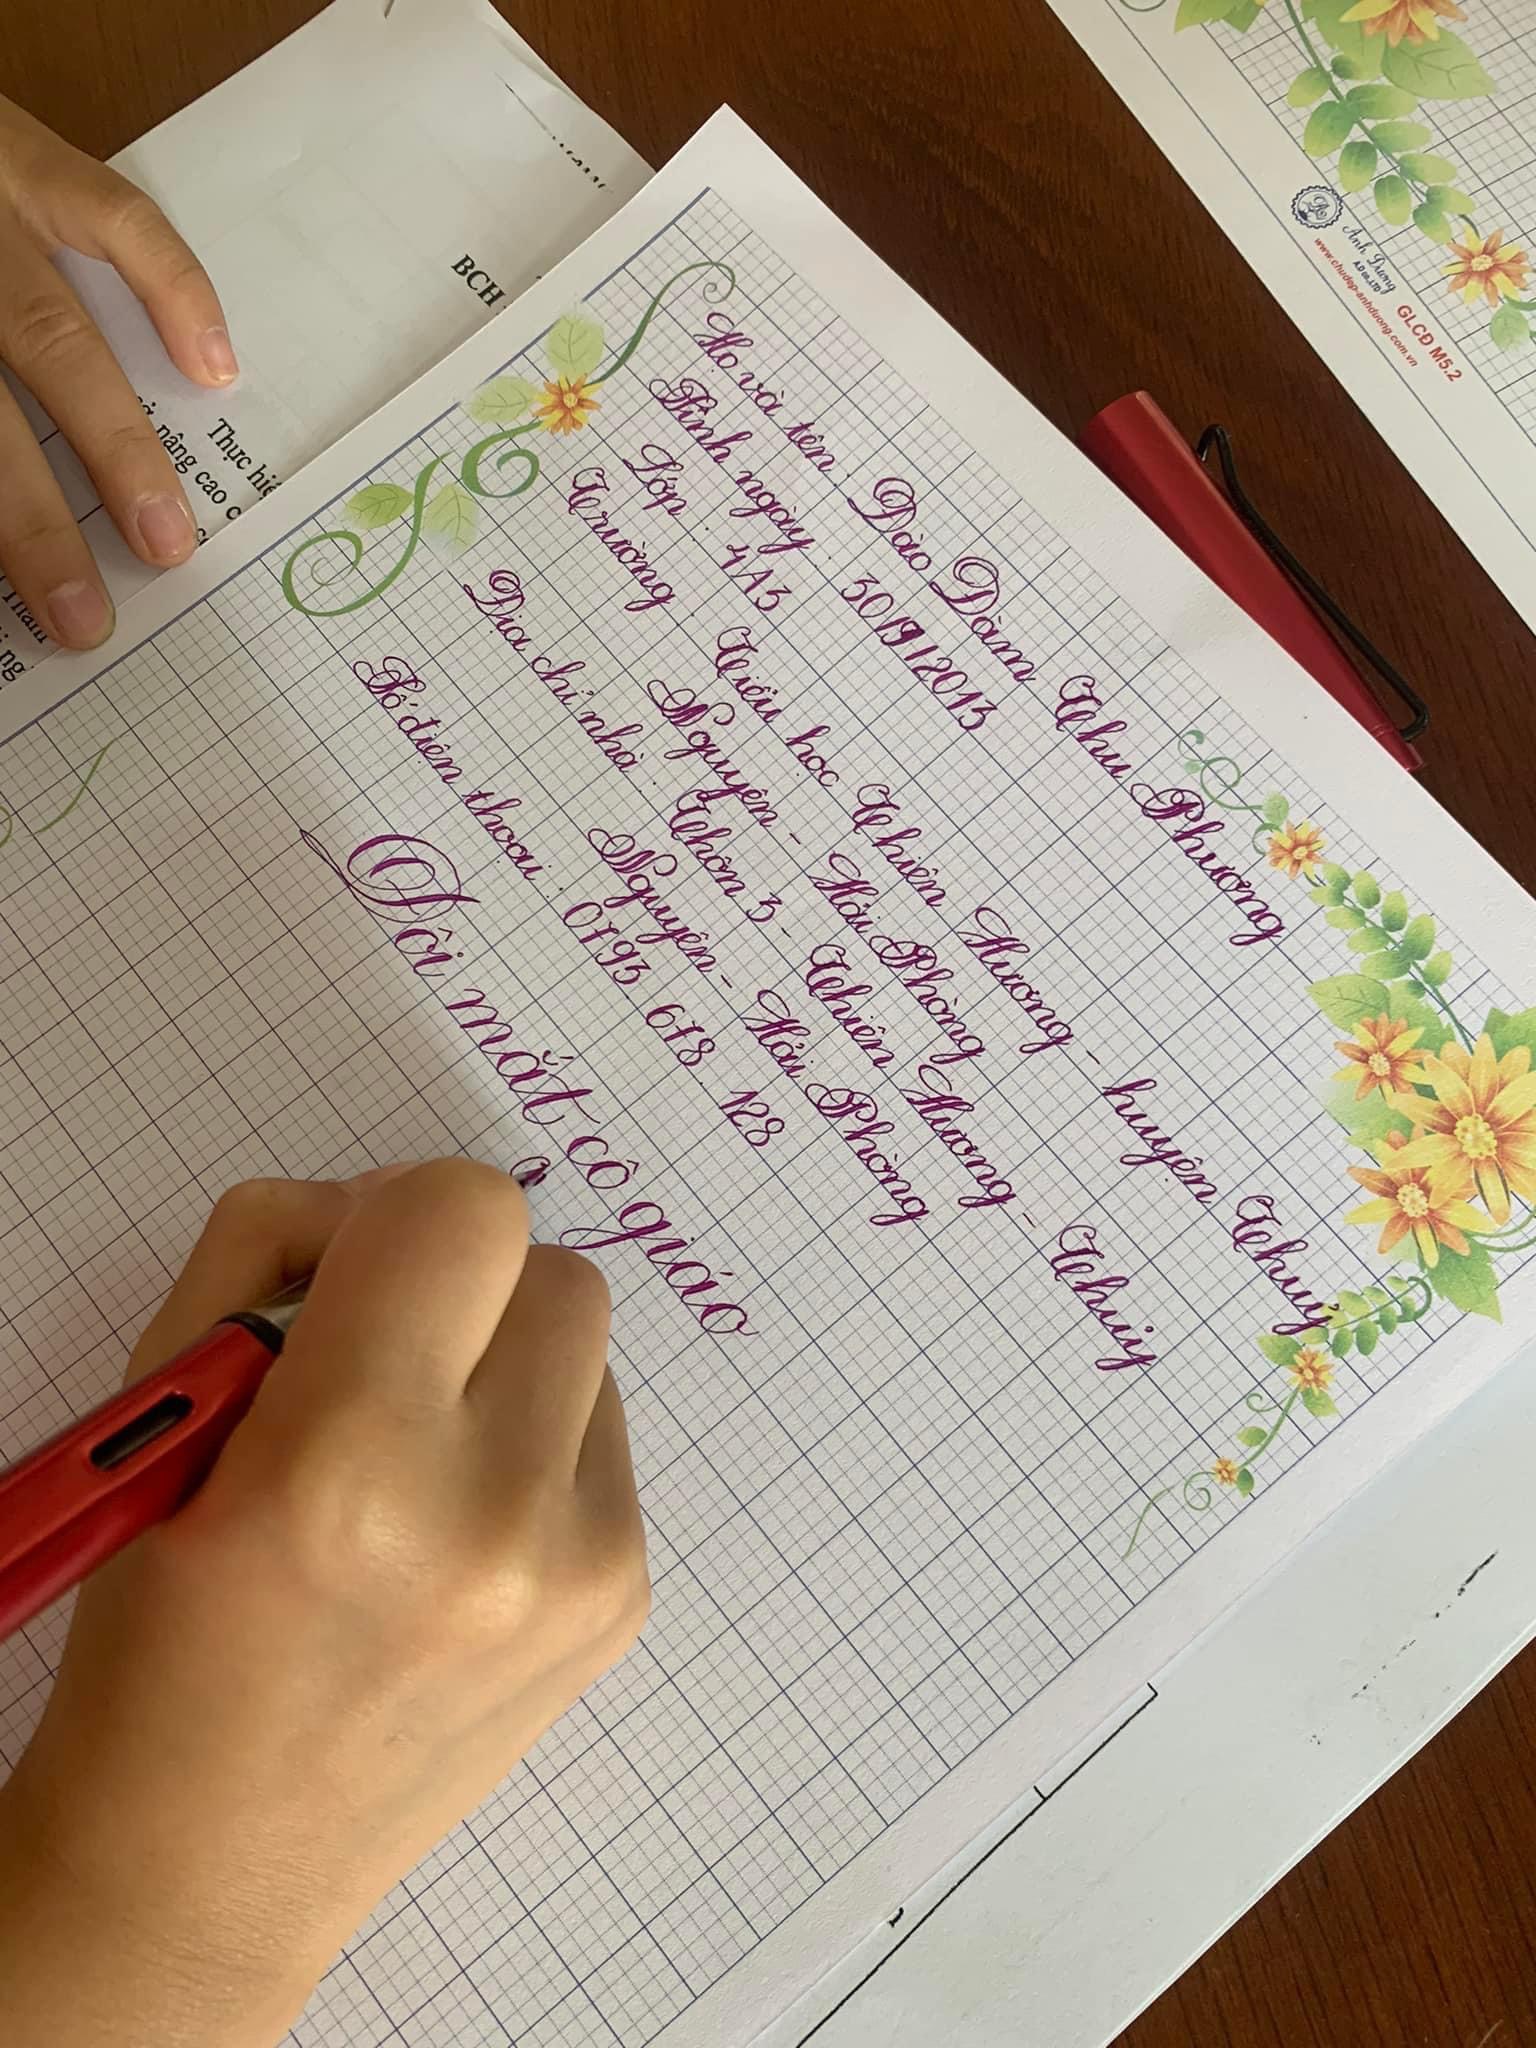 BCH
Thực hiệ
nâng cao c
Họ và tên : Đào Đàm Thu Phương
Sinh ngày : 30/9/2013
Lớp : 4A3
Trường : Tiểu học Thiên Hương - huyện Thuỷ
Nguyên - Hải Phòng
Địa chỉ nhà : Thôn 3 - Thiên Hương - Thủy
Nguyên - Hải Phòng
Số điện thoại : 0793 678 128
Đôi mắt cô giáo
Ánh Dương
A.D co.,LTD
www.chudep-anhduong.com.vn
GLCĐ M5.2